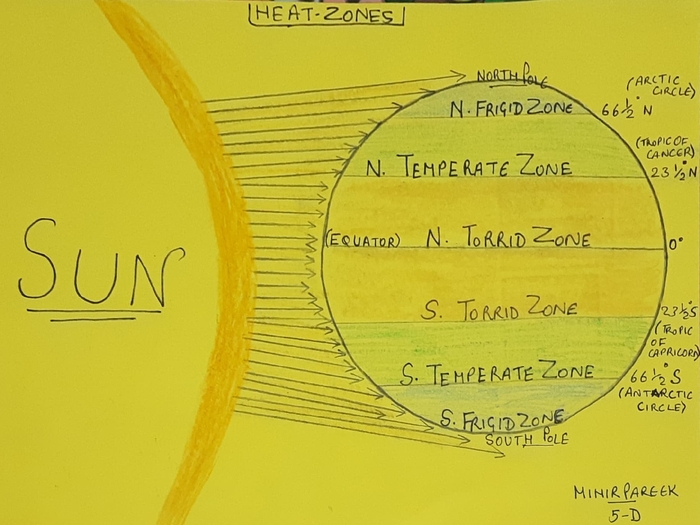 HEAT-ZONES
NORTH POLE
(ARCTIC
CIRCLE)
N. FRIGID ZONE
66 1/2° N
(TROPIC OF
CANCER)
N. TEMPERATE ZONE
23 1/2° N
SUN
(EQUATOR) N. TORRID ZONE
0°
S. TORRID ZONE
23 1/2° S
(TROPIC
OF
CAPRICORD)
S. TEMPERATE ZONE
66 1/2° S
(ANTARCTIC
CIRCLE)
S. FRIGID ZONE
SOUTH POLE
MINIR PAREEK
5-D